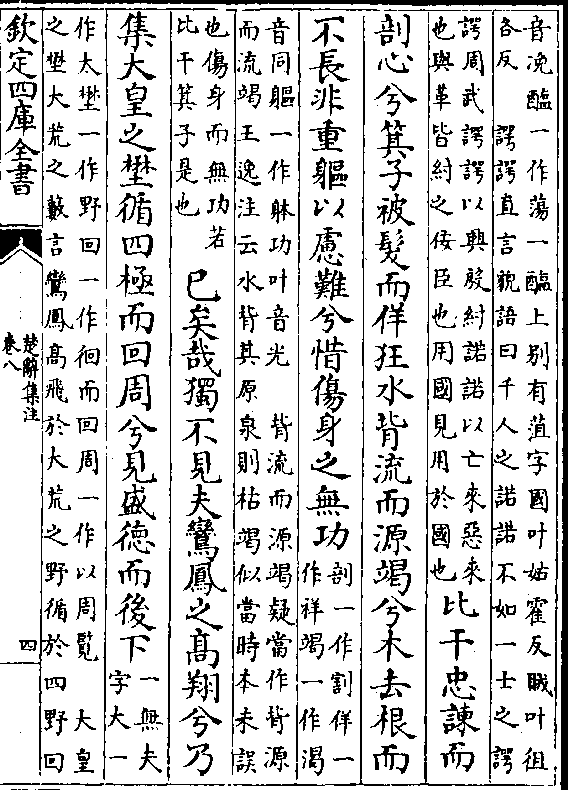 音浼醢一作蕩一醢上别有菹字國叶姑霍反賊叶徂
各反 諤諤直言貌語曰千人之諾諾不如一士之諤
諤周武諤諤以興殷紂諾諾以亡來惡來
也與革皆紂之佞臣也用國見用於國也
比干忠諫而
剖心兮箕子被髮而佯狂水背流而源竭兮木去根而
不長非重軀以慮難兮惜傷身之無功
剖一作割佯一
作祥竭一作渴
音同軀一作躰功叶音光 背流而源竭疑當作背源
而流竭王逸注云水背其原泉則枯竭似當時本未誤
也傷身而無功若
比干箕子是也
已矣哉獨不見夫鸞鳳之髙翔兮乃
集大皇之壄循四極而回周兮見盛德而後下
一無夫
字大一
作太壄一作野回一作徊而回周一作以周覽 大皇
之壄大荒之藪言鸞鳳髙飛於大荒之野循於四野回
欽定四庫全書
楚辭集注
卷八
四